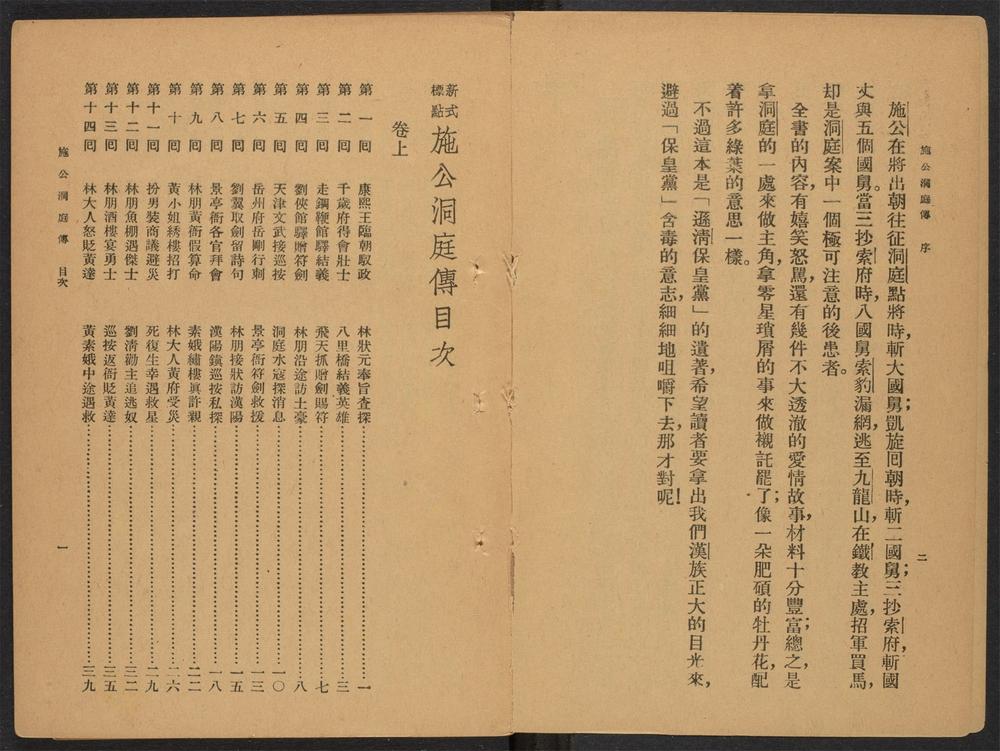 施公洞庭傳　序
二
施公在將出朝往征洞庭點將時，斬大國舅；凱旋回朝時，斬二國舅；三抄索府，斬國
丈與五個國舅。當三抄索府時，八國舅索豹漏網，逃至九龍山，在鐵教主處，招軍買馬，
却是洞庭案中一個極可注意的後患者。
全書的內容，有嬉笑怒罵，還有幾件不大透澈的愛情故事，材料十分豐富；總之，是
拿洞庭的一處來做主角，拿零星瑣屑的事來做襯託罷了；像一朶肥碩的牡丹花，配
着許多綠葉的意思一樣。
不過這本是「遜淸保皇黨」的遺著，希望讀者要拿出我們漢族正大的目光來，
避過「保皇黨」含毒的意志，細細地咀嚼下去，那才對呢！
新式標點 施公洞庭傳目次
卷上
第一回　康熙王臨朝馭政　林狀元奉旨查探……一
第二回　千歲府得會壯士　八里橋結義英雄……三
第三回　走鋼鞭館驛結義　飛天抓贈劍賜符……七
第四回　劉俠館驛贈符劍　林朋沿途訪土豪……八
第五回　天津文武接巡按　洞庭水寇探消息……一〇
第六回　岳州府岳剛行刺　景亭衙符劍救援……一三
第七回　劉翼取劍留詩句　林朋接狀訪漢陽……一五
第八回　景亭衙各官拜會　漢陽鎭巡按私探……一八
第九回　林朋黃衙假算命　素娥繡樓眞許親……二二
第十回　黃小姐綉樓招打　林大人黃府受災……二六
第十一回　扮男裝商議避災　死復生幸遇救星……二九
第十二回　林朋魚棚遇傑士　劉淸勸主追逃奴……三二
第十三回　林朋酒樓宴勇士　巡按返衙貶黃達……三五
第十四回　林大人怒貶黃達　黃素娥中途遇救……三九
施公洞庭傳　目次
一